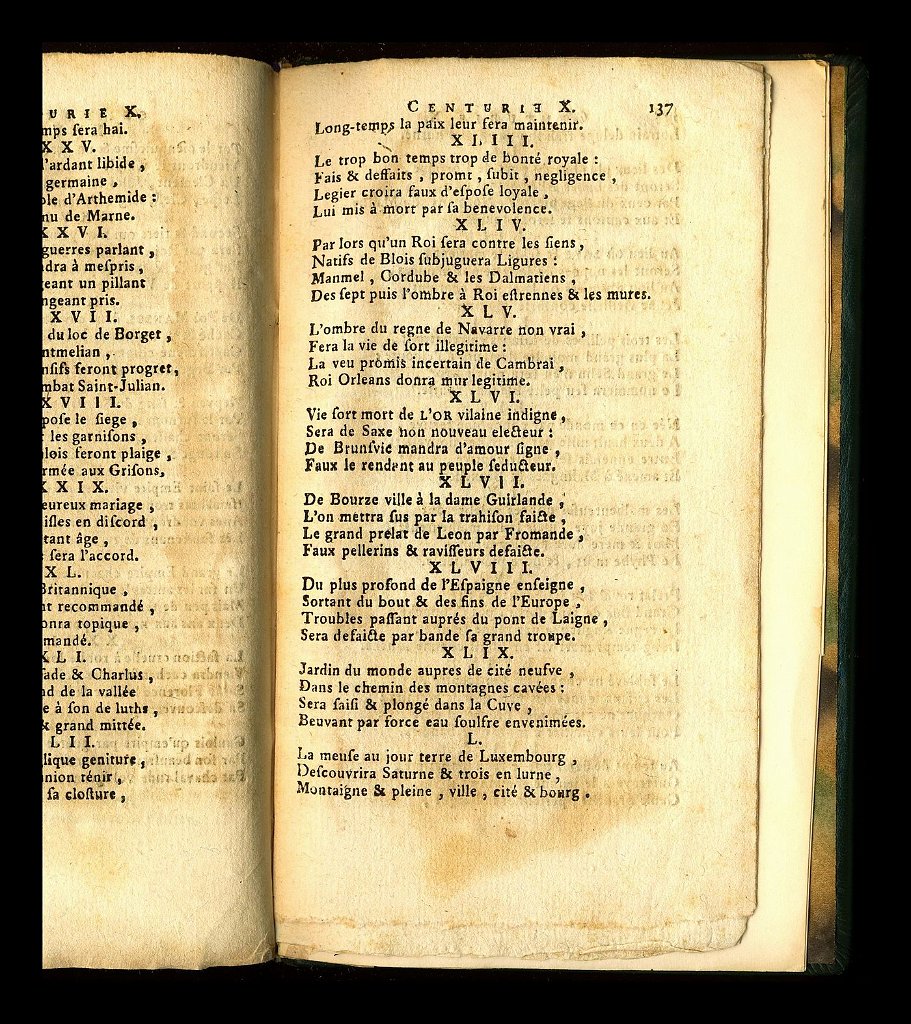 URIE X.
mps ſera hai.
X X V.
l'ardant libide ,
germaine ,
ole d'Arthemide :
nu de Marne.
X X V I.
guerres parlant ,
dra à meſpris ,
geant un pillant
ngeant pris.
X V I I.
du loc de Borget ,
ntmelian ,
nſifs feront progret,
mbat Saint-Julian.
X V I I I.
poſe le ſiege ,
les garniſons ,
lois feront plaige ,
rmée aux Griſons,
X I X.
eureux mariage ,
iſles en diſcord ,
tant âge ,
ſera l'accord.
X L.
Britannique ,
nt recommandé ,
onra topique ,
mandé.
X L I.
ſade & Charlus ,
nd de la vallée
e à ſon de luths ,
& grand mittée.
L I I.
lique geniture ,
nion rénir ,
ſa cloſture ,
CENTURIE X. 137
Long-temps la paix leur ſera maintenir.
X L I I I.
Le trop bon temps trop de bonté royale :
Fais & deffaits , promt , ſubit , negligence ,
Legier croira faux d'eſpoſe loyale ,
Lui mis à mort par ſa benevolence.
X L I V.
Par lors qu'un Roi ſera contre les ſiens ,
Natifs de Blois ſubjuguera Ligures :
Manmel , Cordube & les Dalmatiens ,
Des ſept puis l'ombre à Roi eſtrennes & les mures.
X L V.
L'ombre du regne de Navarre non vrai ,
Fera la vie de ſort illegitime :
La veu promis incertain de Cambrai ,
Roi Orleans donra mur legitime.
X L V I.
Vie ſort mort de L'OR vilaine indigne ,
Sera de Saxe non nouveau electeur :
De Brunſvic mandra d'amour ſigne ,
Faux le rendant au peuple ſeducteur.
X L V I I.
De Bourze ville à la dame Guirlande ,
L'on mettra ſus par la trahiſon faicte ,
Le grand prelat de Leon par Fromande ,
Faux pellerins & raviſſeurs defaicte.
X L V I I I.
Du plus profond de l'Eſpaigne enſeigne ,
Sortant du bout & des fins de l'Europe ,
Troubles paſſant auprés du pont de Laigne ,
Sera defaicte par bande ſa grand troupe.
X L I X.
Jardin du monde aupres de cité neufve ,
Dans le chemin des montagnes cavées :
Sera ſaiſi & plongé dans la Cuve ,
Beuvant par force eau ſoulfre envenimées.
L.
La meuſe au jour terre de Luxembourg ,
Deſcouvrira Saturne & trois en lurne ,
Montaigne & pleine , ville , cité & bourg .